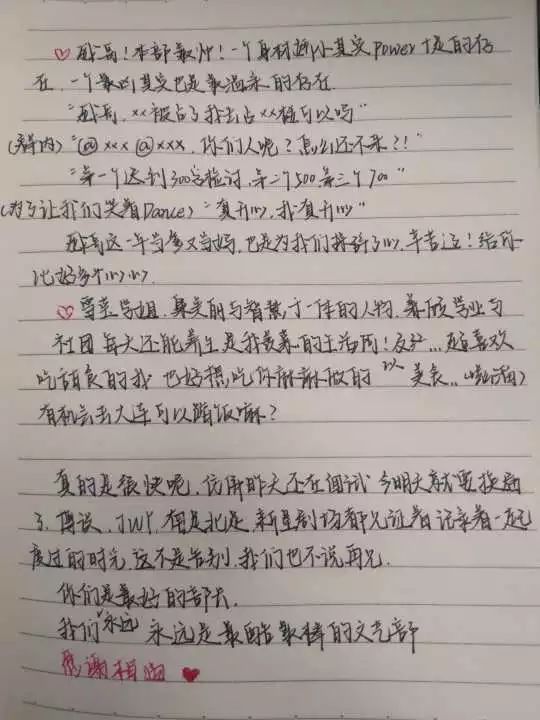 ♡ 哥！本部最帅！一个身材娇小其实power十足的存
在，一个最凶其实也是最温柔的存在
"哥，xx被占了我去占xx楼可以吗"
(群内) "@xxx @xxx，你们人呢？怎么还不来？！"
"第一个迟到300字检讨，第二个500第三个700"
(为了让我们笑着Dance) "真开心，我真开心"
哥这一年当爹又当妈，也是为我们操碎了心，辛苦这！给你
比好多个心心
♡ 雪学姐，集美丽与智慧于一体的人物，兼顾学业与
社团每天还能养生是我最羡的生活！反…超喜欢
吃甜食的我 也好想吃你做的 美食..
有机会去大连可以蹭饭嘛？
真的是很快呢，仿佛昨天还在面试 今明天就要换届
了，JWT，都见证着记录着一起
度过的时光，这不是告别，我们也不说再见
你们是最好的部长
我们永远 永远是最酷最棒的文艺部
感谢相遇 ♥